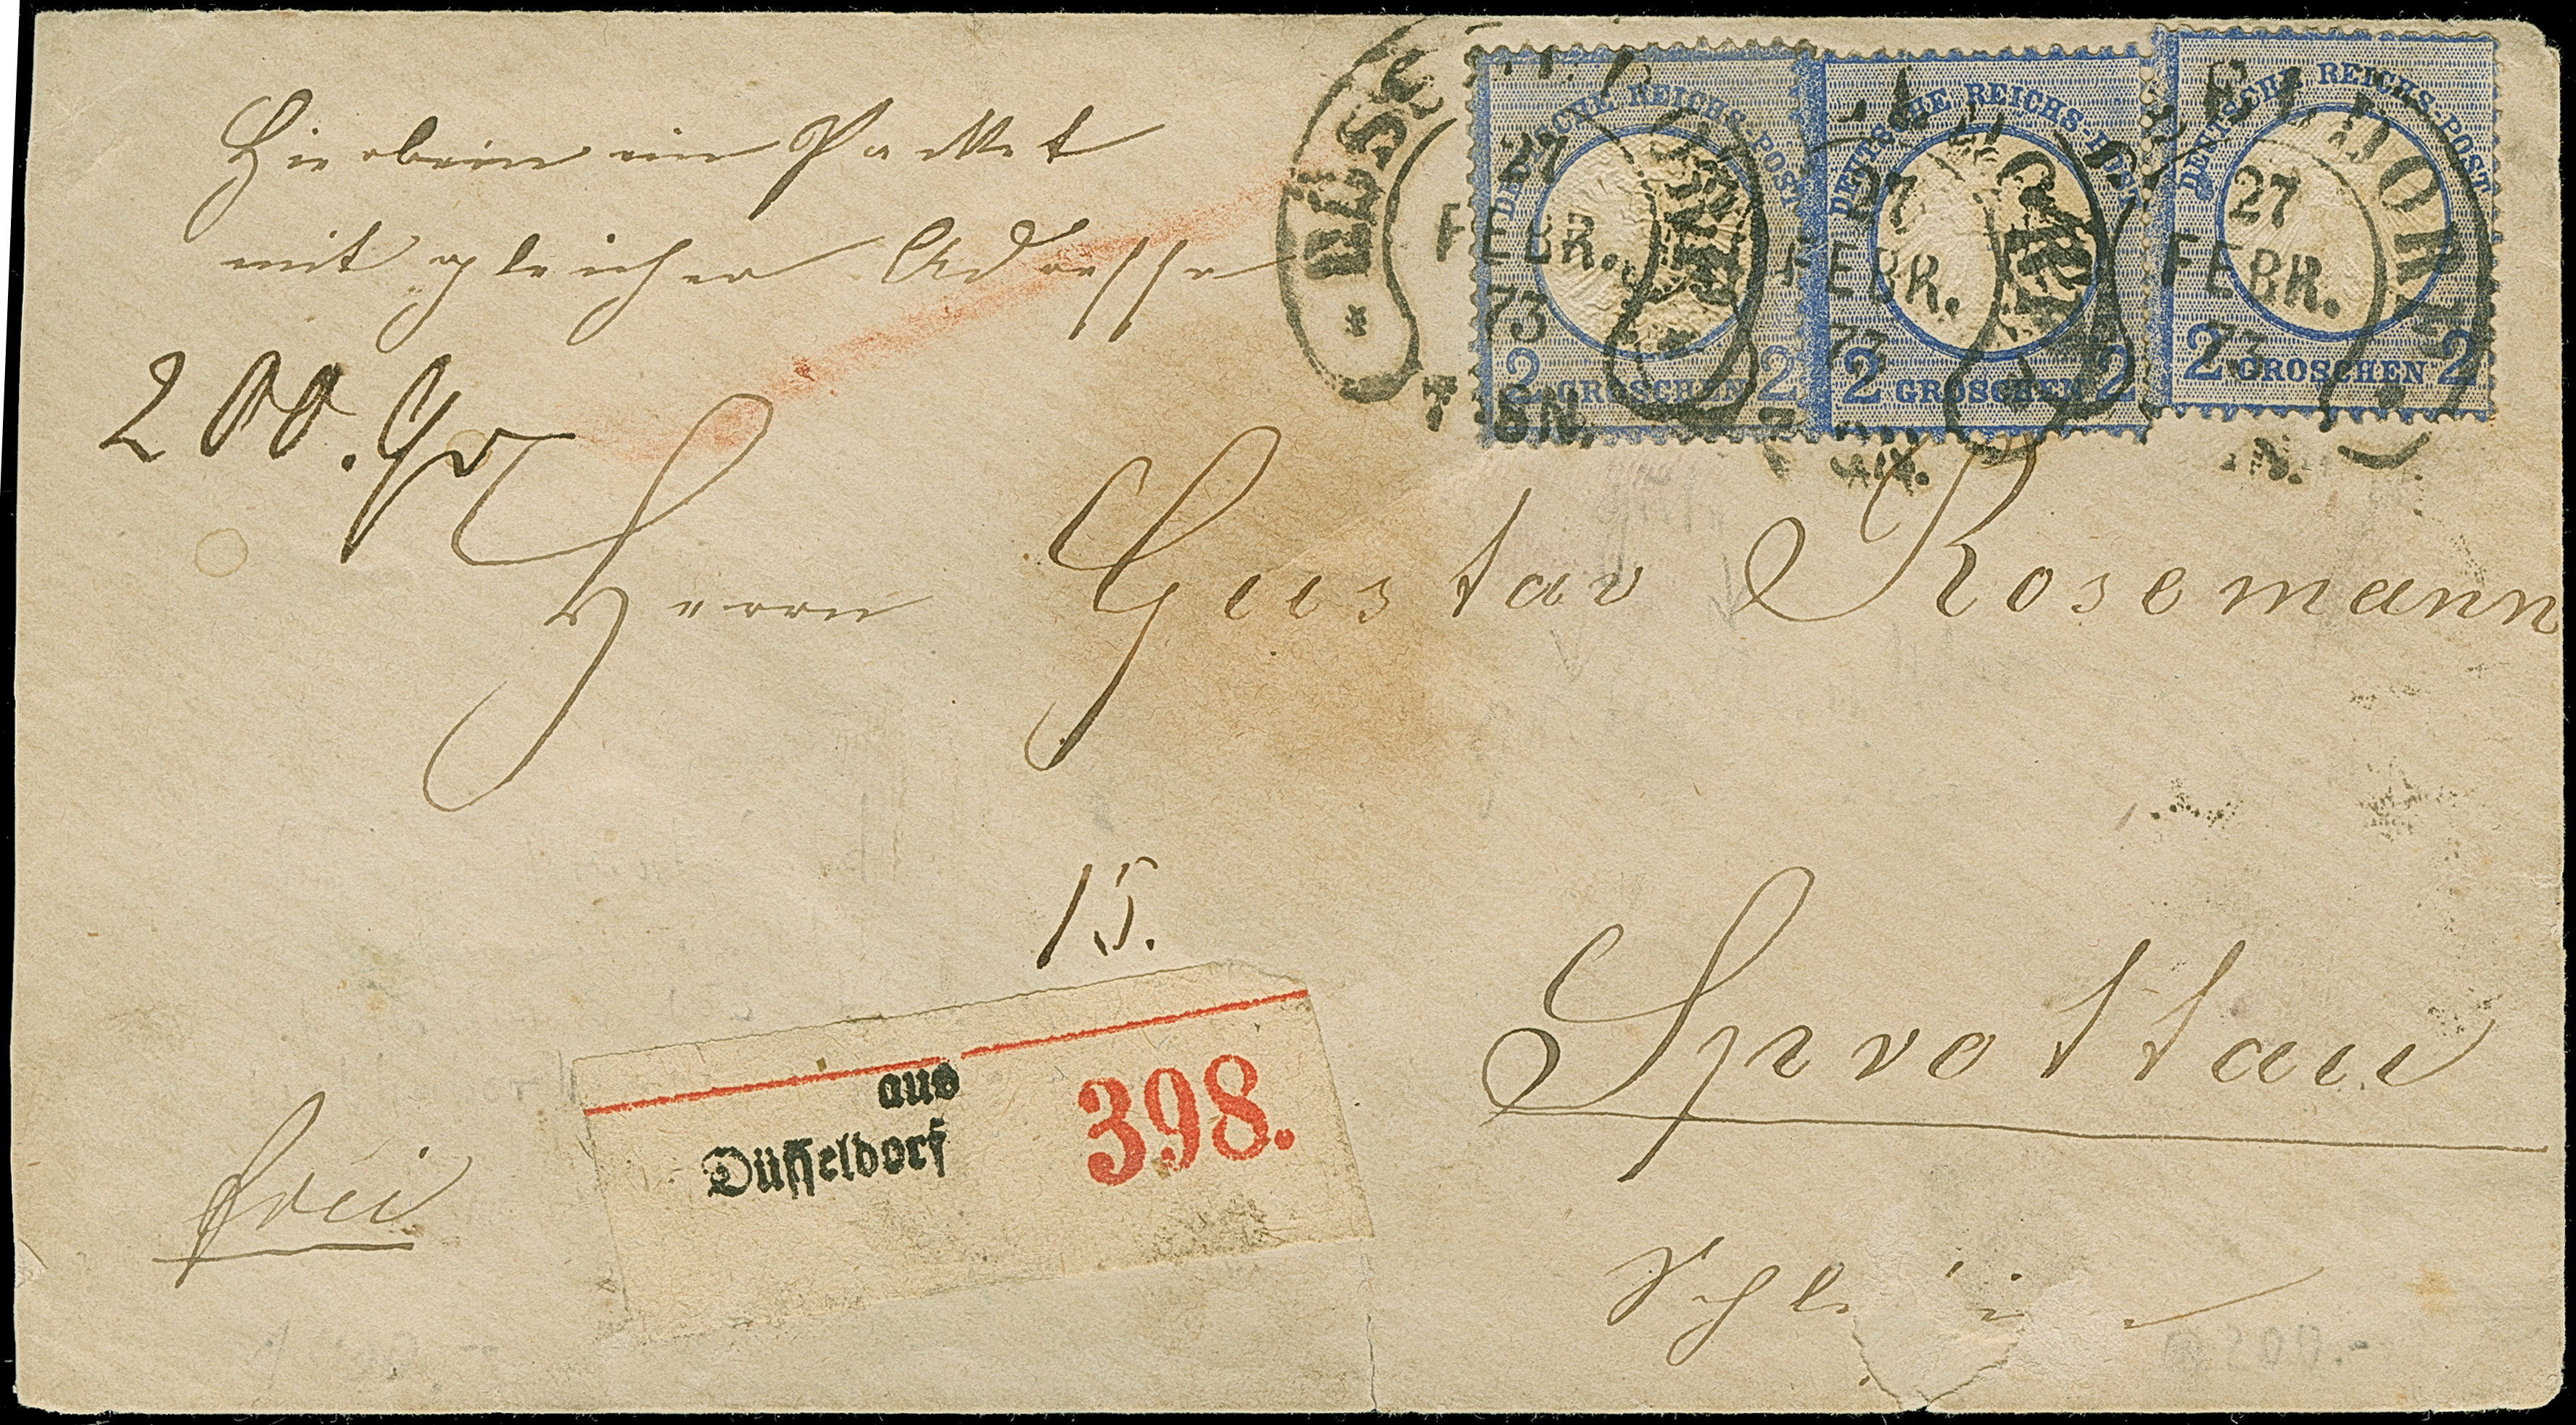 Hierbei ein Packet
mit gleicher Adresse
200. Gr
DEUTSCHE REICHS-POST
2 GROSCHEN 2
DEUTSCHE REICHS-POST
2 GROSCHEN 2
DEUTSCHE REICHS-POST
2 GROSCHEN 2
DÜSS
27
FEBR.
73
27
FEBR.
73
DORF
27
FEBR.
73
Herrn Gustav Rosemann
15.
aus
Düsseldorf
398.
Sprottau
frei